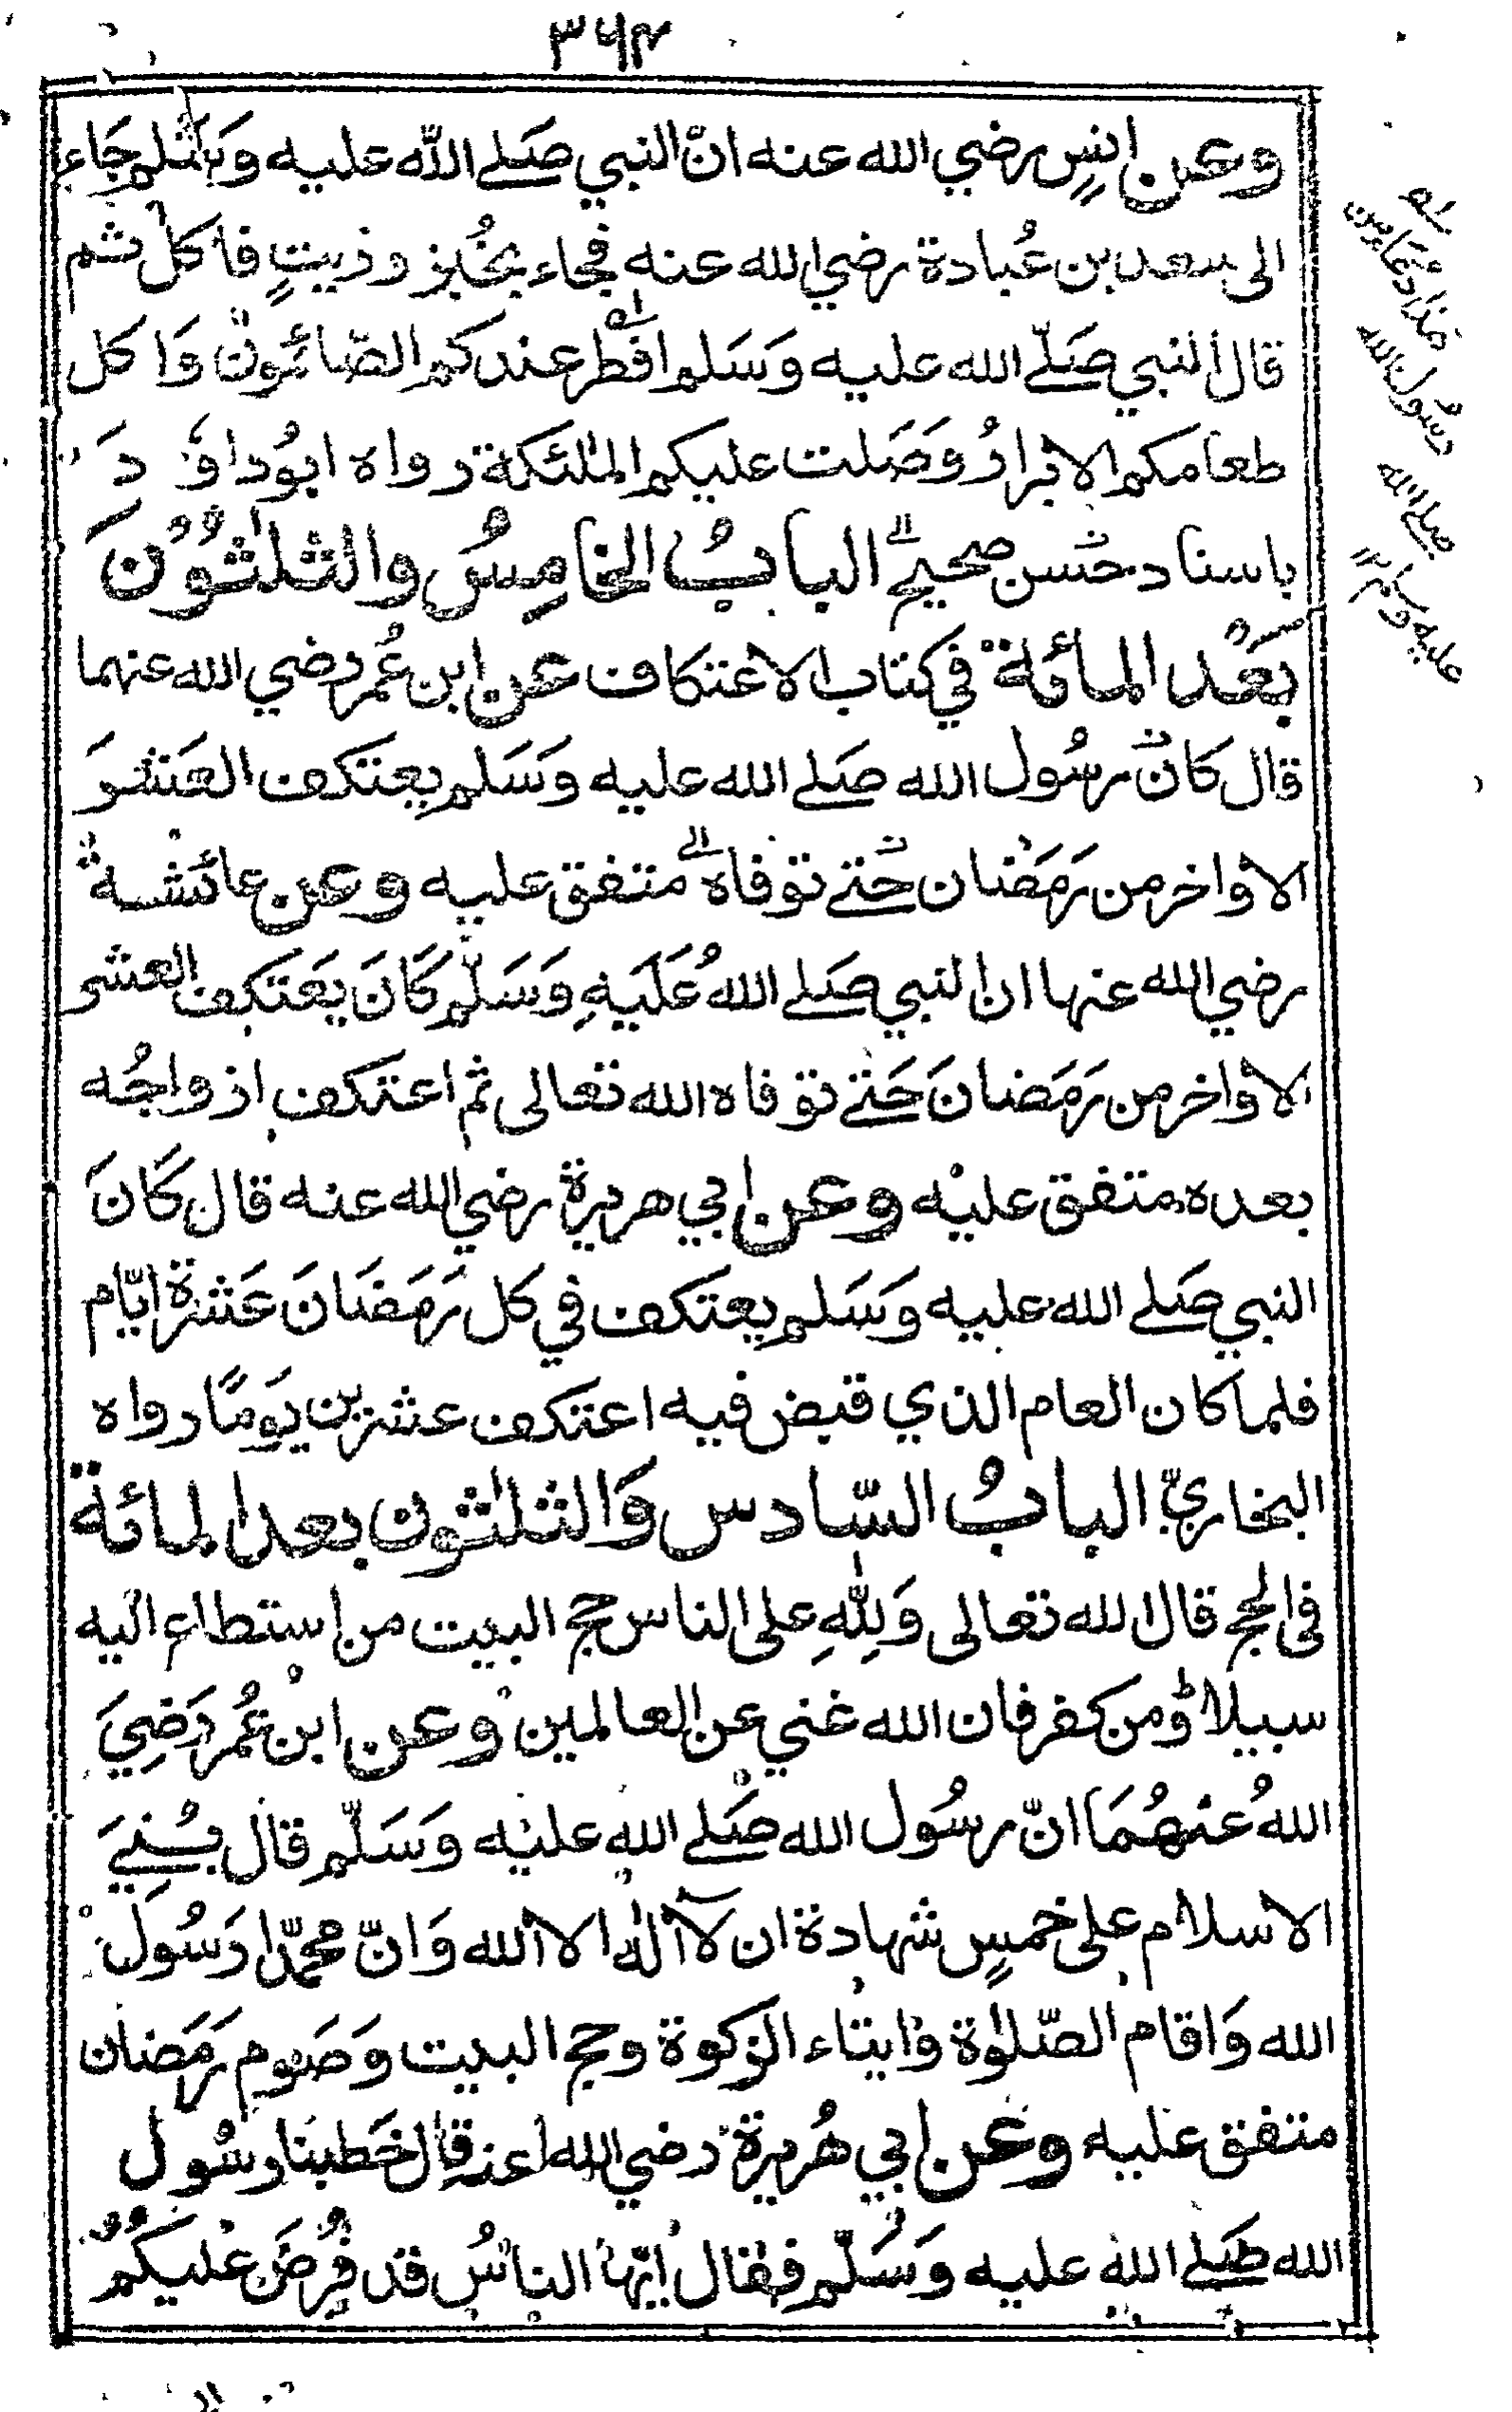 ٣٦٤
وعن انسٍ رضي الله عنه انّ النبي صَلے الله عليه وَسَلم جَاء
الى سعد بن عُبادة رضي الله عنه فجاء بخُبز وزيتٍ فاكل ثم
قال النبي صَلّے الله عليه وَسَلم افطر عندكم الصّائمون وَاكل
طعامكم الابرارُ وَصَلت عليكم الملٰئكة رواه ابوُداوٗدَ
باسناد حَسن صحيح البابُ الخامِسُ والثلٰثُوُنَ
بَعْد المائة في كتاب الاعتكاف عن ابن عُمر رضي الله عنهما
قال كانَ رسُول الله صَلے الله عليه وَسَلم يعتكف العَشرَ
الاواخر من رَمَضان حَتے توفاه الله متفق عليه وعن عائشة
رضي الله عنها ان النبي صَلے اللهُ عَلَيهِ وَسَلّم كَانَ يَعتكف العشر
الاواخر من رَمَضانَ حَتے توفاه الله تعالى ثم اعتكف ازواجُه
بعده متفق عليه وعن ابي هريرة رضي الله عنه قال كَانَ
النبي صَلے الله عليه وَسَلم يعتكف في كل رَمَضَانَ عَشرة ايّام
فلما كان العام الذي قبض فيه اعتكف عشرين يَومًا رواه
البخاريّ البابُ السّادس وَالثلٰثون بعد المائة
فى الحج قال الله تعالى وَلِلّٰهِ على الناس حج البيت من استطاع اليه
سبيلا ومن كفر فان الله غني عن العالمين وعن ابن عُمر رَضِيَ
اللهُ عنهُمَا انّ رسُول الله صَلے الله عليه وَسَلّم قال بُنِيَ
الاسلام على خمسٍ شهادة ان لآ اله الا الله وَانّ محمّدا رَسُول
الله وَاقام الصّلوٰة وايتاء الزكوة وحج البيت وَصَوم رَمَضان
متفق عليه وعن ابي هُريرة رضي الله عنه قال خَطبنا رسُول
الله صَلے الله عليه وَسَلّم فقال ايّها الناسُ قد فُرِضَ عَليكُم
له
هَذا دعَاء من
رسُول الله
صلے الله
عليه وسلم ١٢